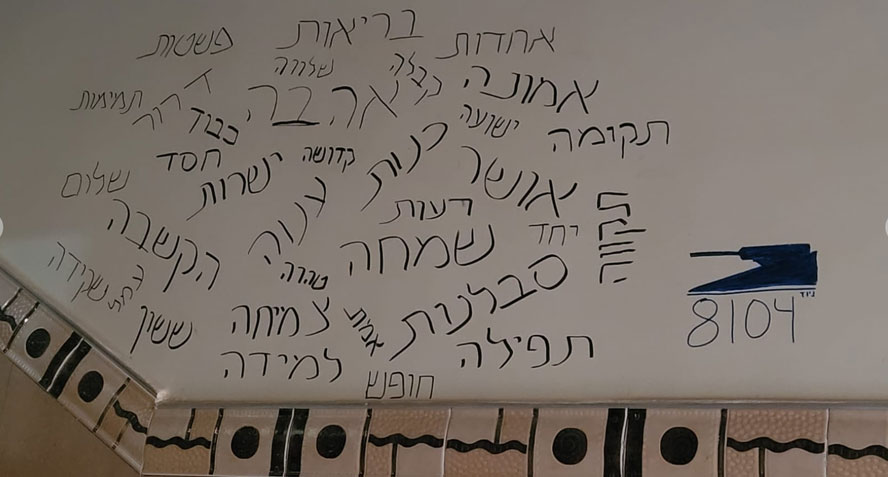 בריאות
אחדות
פשטות
שלווה
קבלה
אמונה
אהבה
תמימות
כבוד
ישועה
תקומה
חסד
ישרות
קדושה
כנות
אושר
שלום
הקשבה
רעות
יחד
שמחה
טהרה
שקידה
סבלנות
ששון
צמיחה
אמת
תפילה
למידה
חופש
8104